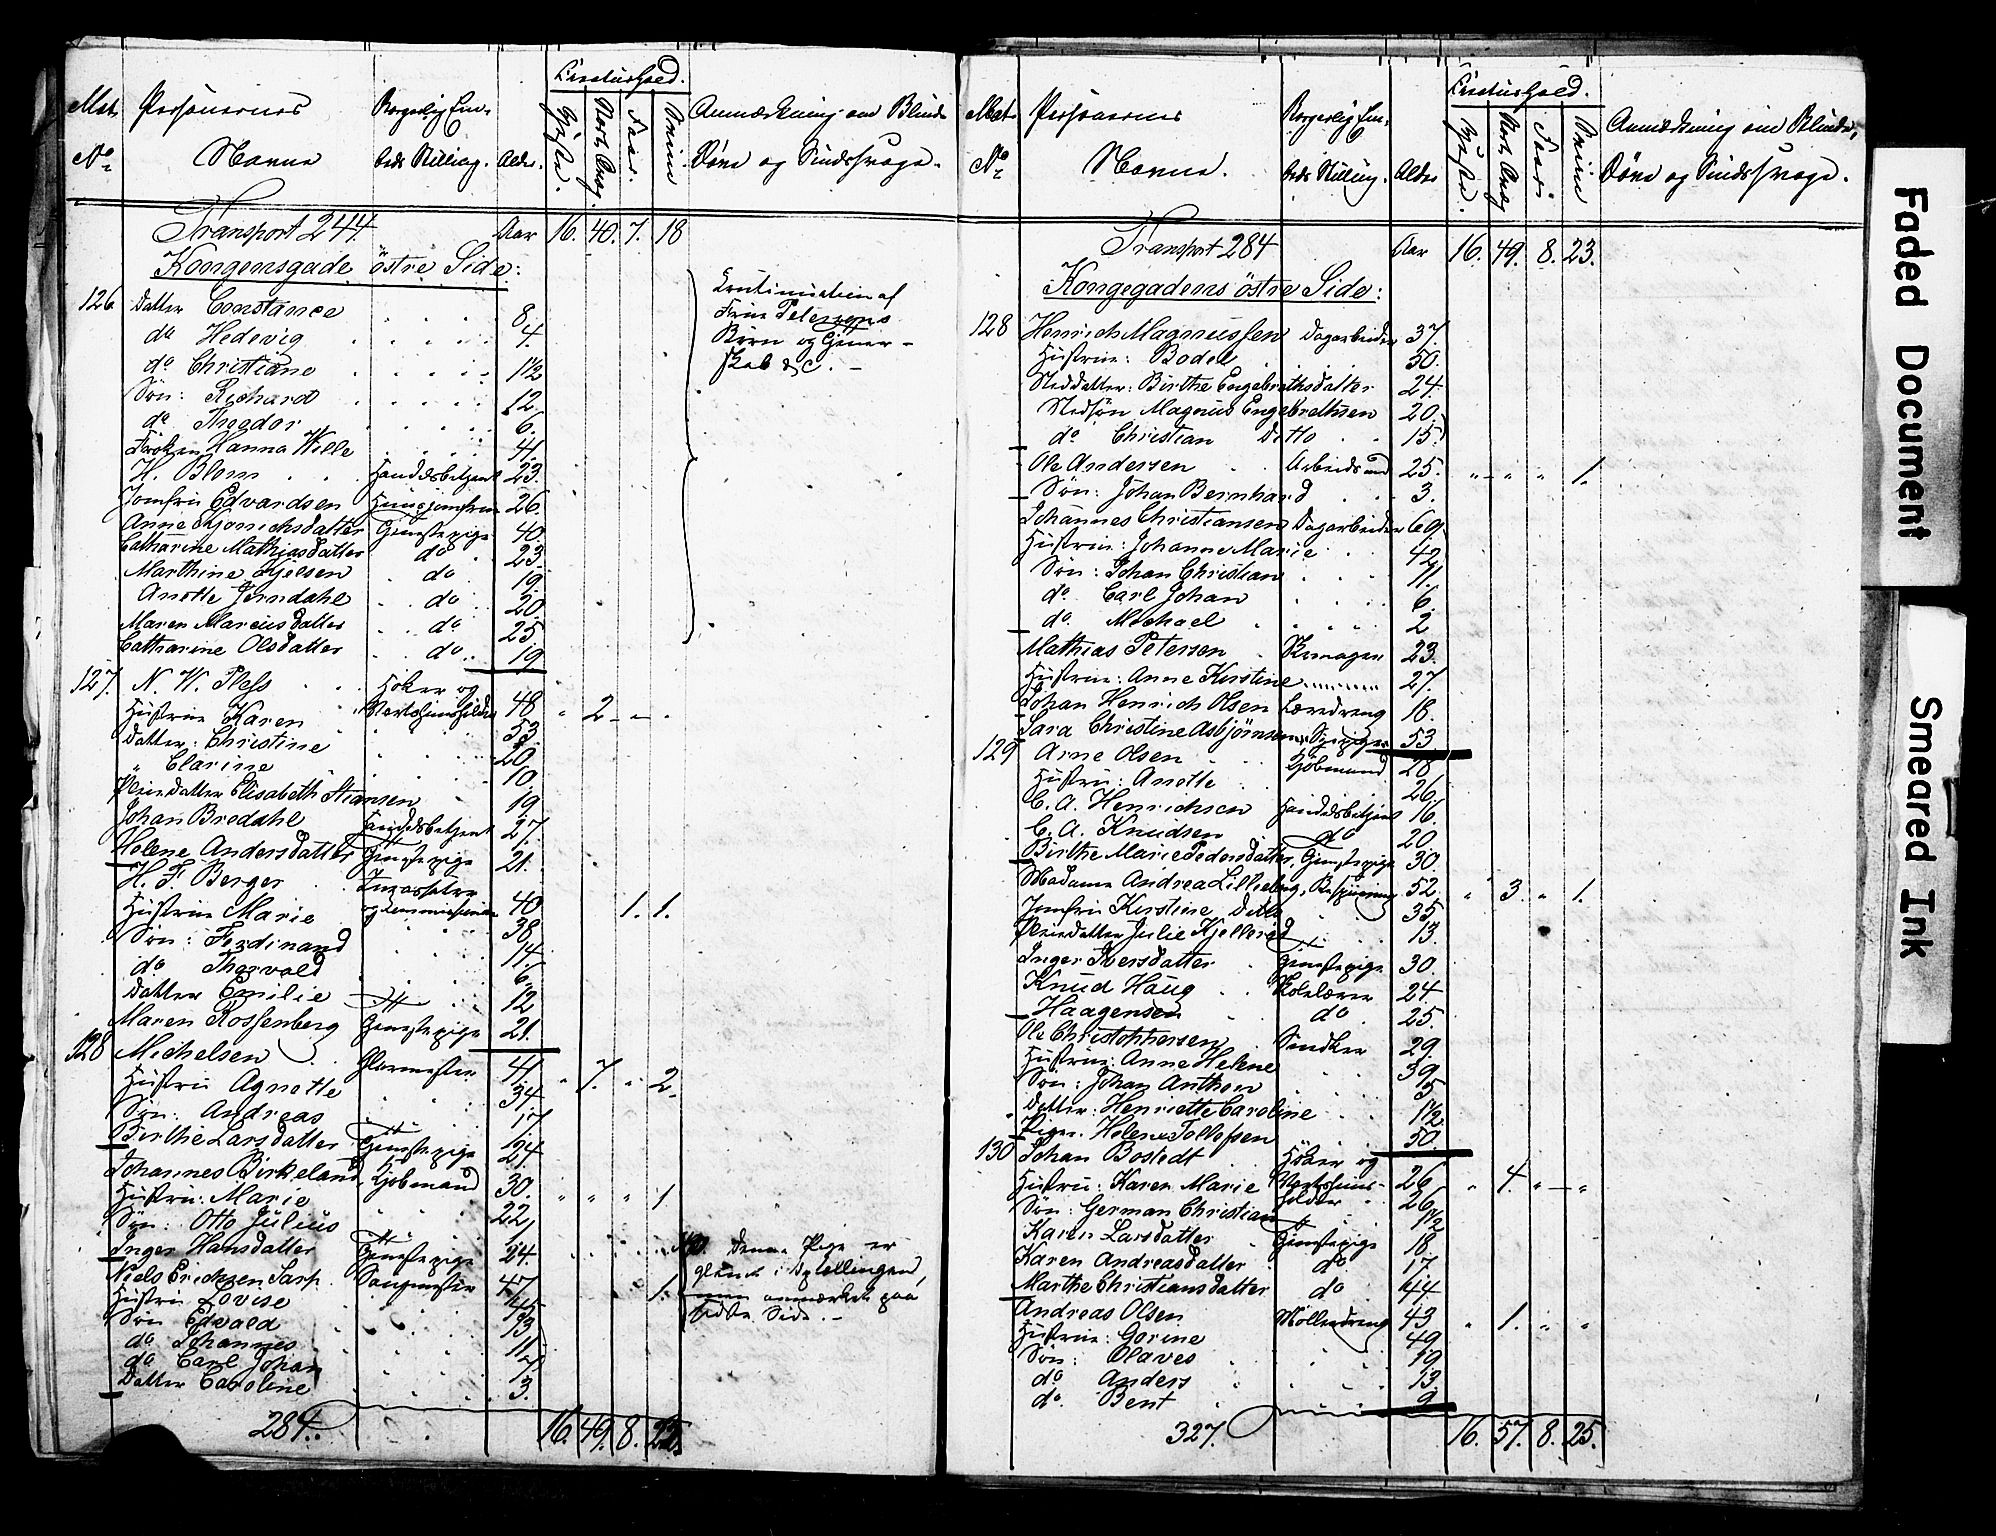 Mat. Personernes Borgerlig Em- Creaturhold. Anmærkning om Blinde
No Navne beds Stilling. Alder. Heste. Hort. Qvæg Faar. Sviin Døve og Sindssvage.
Transport 244. Aar 16. 40. 7. 18
Kongensgade østre Side:
126 Datter Constance 8.
do Hedevig 4.
do Christiane 1½
Søn: Richard 12.
do Theodor 6.
Frøken Hanna Wille 41.
H. Blom Handelsbetjent 23.
Jomfru Edvardsen Huusjomfrue 26.
Anne Gjerichsdatter Tjenstepige 40.
Catharine Mathiasdatter do 23.
Marthine Hjelsen do 19.
Anette Jerndahl do 20.
Maren Marcusdatter do 25.
Catharine Olsdatter do 19
Continuation af
Frue Petersens
Børn og Tjener-
skab &c. -
127. N. W. Pless Høker og
Værtshuusholder 48 2
Hustrue Karen 53.
Datter: Christine 20.
" Clarine 10.
Pleiedatter Elisabeth Stiansen 19.
Johan Bredahl Handelsbetjent 27.
Helene Andersdatter Tjenstepige 21.
H. F. Berger
og Commissionair 40 1. 1.
Hustrue Marie 38.
Søn: Ferdinand 14.
do Thorvald 6.
Datter Emilie 12
Maren Rossenberg Tjenstepige 21.
128 Michelsen Glarmester 41. 7. 2.
Hustru Agnette 34.
Søn: Andreas 17.
Birthe Larsdatter Tjenstepige 24.
Johannes Birkeland Kjøbmand 30. " " " 1
Hustru: Marie 22.
Søn: Otto Julius 1
Inger Hansdatter Tjenstepige 24.
Niels Erichsen Sarp. Sangmester 47. 1.
Hustru Lovise 45.
Søn Edvald 13
do Johannes 11.
do Carl Johan 7.
Datter Caroline 3.
NB. Denne Pige er
glemt i Optellingen,
men anmærket paa
sidste Side. -
284. 16. 49. 8. 23.
Mat. Personernes Borgerlig Em- Creaturhold. Anmærkning om Blinde,
No Navne. beds Stilling. Alder Heste. Hort. Qvæg Faar. Sviin Døve og Sindssvage.
Transport 284 Aar 16. 49. 8. 23.
Kongegadens østre Side:
128 Henrich Magnussen Dagarbeider 37.
Hustrue: Bodel 50.
Steddatter: Birthe Engebrethsdatter 24.
Stedsøn Magnus Engebrethsen 20.
do Christian Ditto 15.
Ole Andersen Arbeidsmd 25. " - " " 1.
Søn: Johan Bernhard 3.
Johannes Christiansen Dagarbeider 69.
Hustrue: Johanne Marie 42.
Søn: Johan Christian 11.
do Carl Johan 6.
do. Michael 2
Mathias Petersen Skomager 23.
Hustrue: Anne Kirstine 27.
Johan Henrich Olsen Læredreng 18.
Sara Christine Asbjørnsen Sypige 53
129 Arne Olsen Kjøbmand 28
Hustru: Anette 26.
C. A. Henrichsen Handelsbetjent 16.
C. A. Knudsen do 20.
Birthe Marie Pedersdatter, Tjenstepige 30.
Madame Andrea Lilleberg, Bespiisning 52. " 3. " 1.
Jomfru Kirstine Ditto 35.
Pleiedatter Julie Kjellerød 13.
Inger Iversdatter Tjenstepige 30.
Knud Haug Skolelærer 24.
Haagensen do 25.
Ole Christophersen Snedker 29.
Hustrue: Anne Helene 39.
Søn: Johan Anthon 5
Datter: Henriette Caroline 1½
Pigen Helene Tollefsen 50.
130 Johan Bostedt Høker og
Værtshuus-
holder 26 " 4. " - "
Hustru: Karen Marie 26.
Søn: German Christian 1½
Karen Larsdatter Tjenstepige 18.
Karen Andreasdatter do 17.
Marthe Christiansdatter do 44
Andreas Olsen Møllerdreng 43 " 1. " "
Hustrue: Gorine 49.
Søn: Olaves 19.
do Anders 13.
do. Bent 9
327. 16. 57. 8. 25.
Faded Document
Smeared Ink